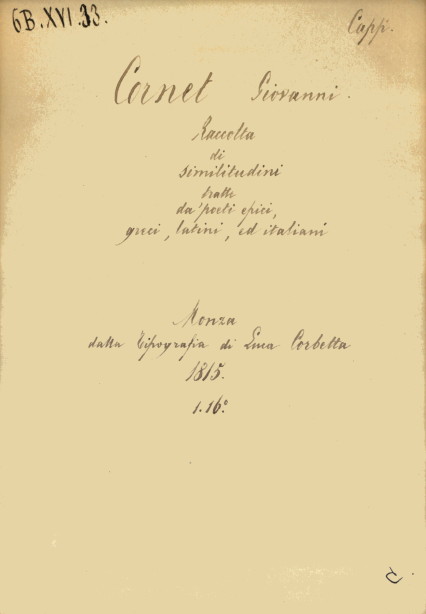 6B.XVI.33.
Capp.
Cornet Giovanni.
Raccolta
di
similitudini
tratte
da' poeti epici,
greci, latini, ed italiani
Monza
dalla Tipografia di Luca Corbetta
1815.
1.16°